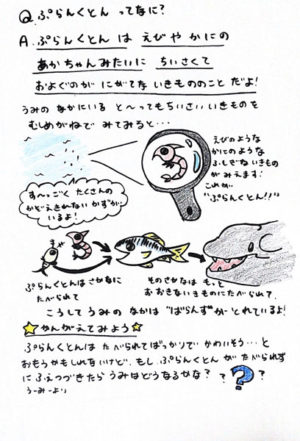 Q. ぷらんくとん ってなに?
A. ぷらんくとん は えびや かにの
あかちゃんみたいに ちいさくて
およぐのが にがてな いきもののこと だよ!
うみの なかにいる と〜ってもちいさい いきものを
むしめがねで みてみると…
えびのような
かにのような
ふしぎな いきもの
が みえます!
これが…
"ぷらんくとん!!"
す〜っごく たくさんの
かぞえきれない かずが
いるよ!
ぷらんくとんは さかなに
たべられて
そのさかなは もっと
おおきないきものに たべられて、
こうして うみの なかは "ばらんす"が とれているよ!
かんがえてみよう
ぷらんくとんは たべられてばっかりで かわいそう…と
おもうかもしれないけど、もし ぷらんくとん が たべられず
に ふえつづきたら うみは どうなるかな?
???
うーみーより